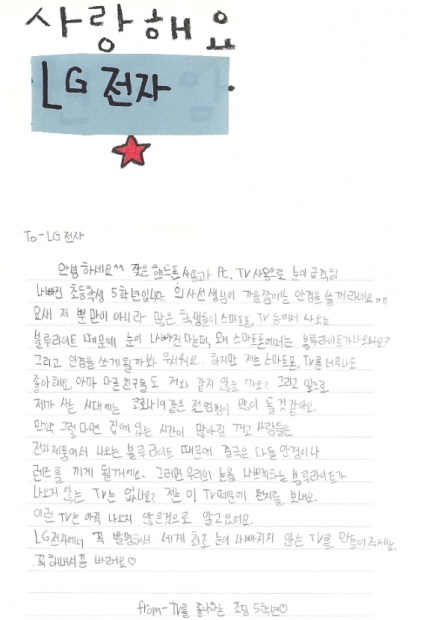 사랑해요
LG 전자
To - LG 전자
안녕하세요^^ 잦은 핸드폰 사용과 Pc, TV 사용으로 눈이 급격히
나빠진 초등학생 5학년입니다. 의사선생님이 가을쯤에는 안경을 쓸꺼라네요ㅠㅠ
요새 저 뿐만이 아니라 많은 학생들이 스마트폰, TV 등에서 나오는
블루라이트 때문에 눈이 나빠진다는데, 왜 스마트폰에서는 블루라이트가 나오나요?
그리고 안경을 쓰게 될까봐 무서워요. 하지만 저는 스마트폰, TV를 너무나도
좋아해요. 아마 다른친구들도 저와 같지 않을까요? 그리고 앞으로
제가 사는 시대에는 코로나19 같은 전염병이 많이 돌것 같아요.
만약 그렇다면 집에 있는 시간이 많아질 꺼고 사람들은
전자제품에서 나오는 블루라이트 때문에 결국은 다들 안경이나
렌즈를 끼게 될꺼예요. 그러면 우리의 눈을 나빠지게하는 블루라이트가
나오지 않는 TV는 없나요? 저는 이 TV때문에 편지를 보내요.
이런 TV는 아직 나오지 않은것으로 알고있어요.
LG전자에서 꼭 발명해서 세계 최초 눈이 나빠지지 않는 TV를 만들어주세요.
꼭 해내셔야 바래요♡
from - TV를 좋아하는 초딩 5학년♡